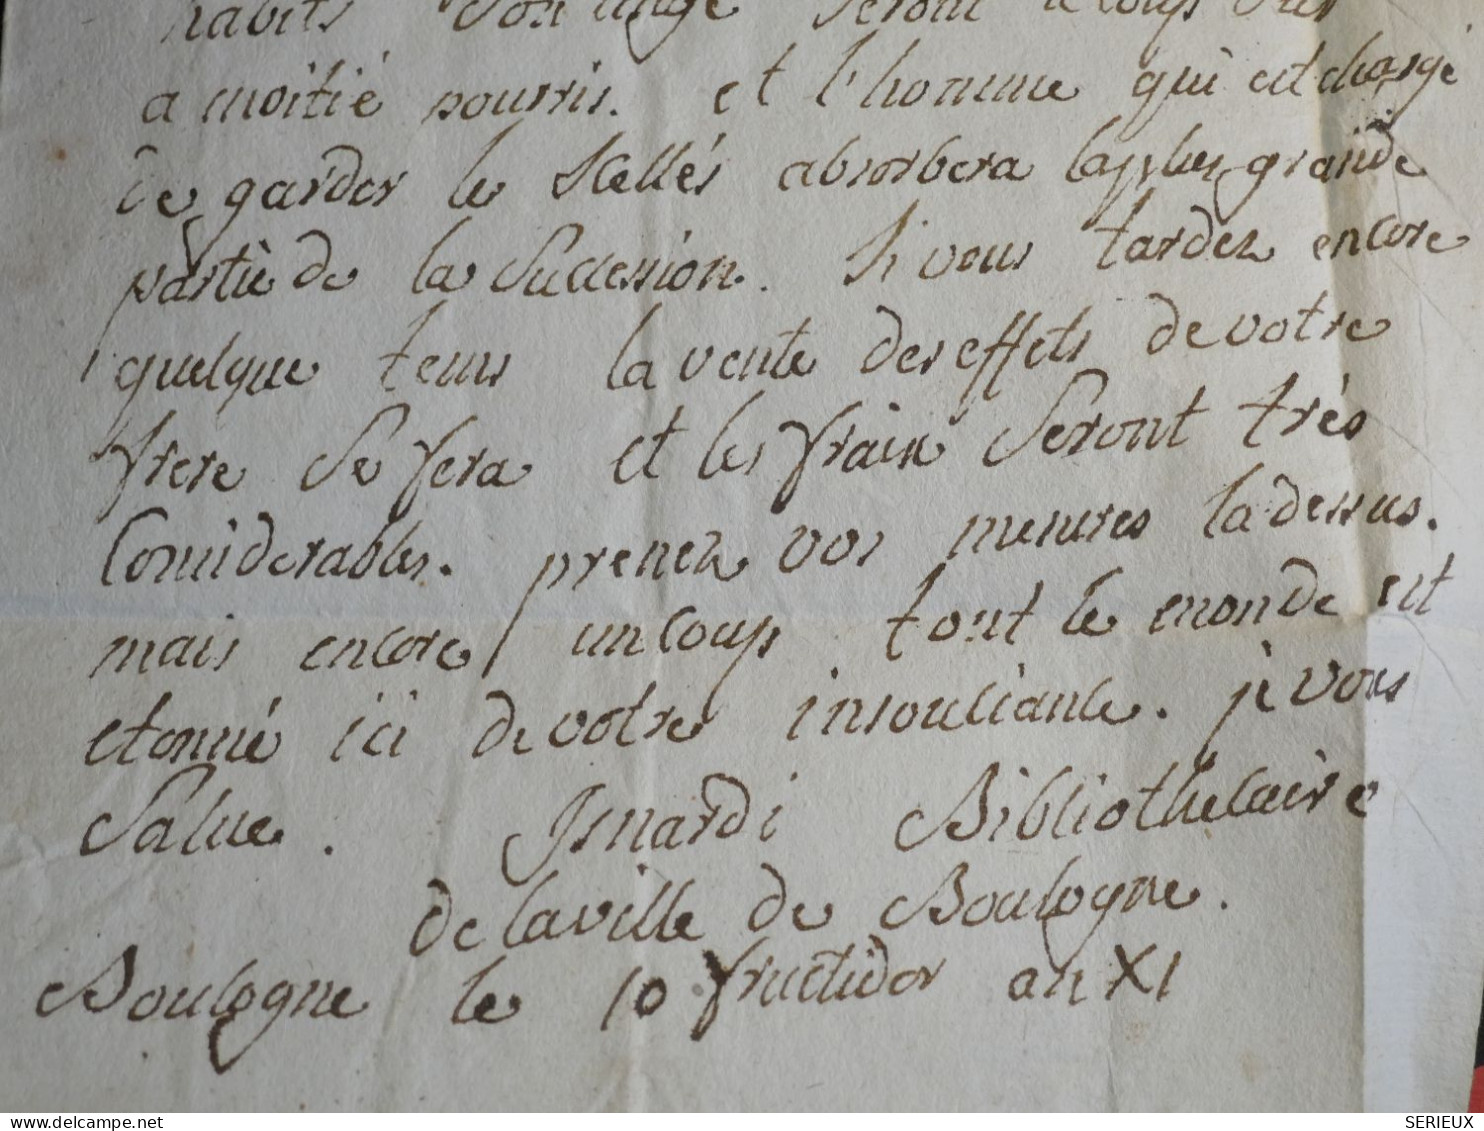 habits son linge seront a coup sur
a moitié pourris. et l'homme qui est chargé
de garder le scellés absorbera la plus grande
partie de la Succession. Si vous tardez encore
quelque tems la vente des effets de votre
frere Se fera et les frain Seront très
Considerables. prenez vos mesures la dessus.
mais encore un coup tout le monde est
etonné ici de votre insouciance. je vous
Salue. Isnardi Bibliothecaire
de la ville de Boulogne.
Boulogne le 10 fructidor an XI
delcampe.net
SERIEUX